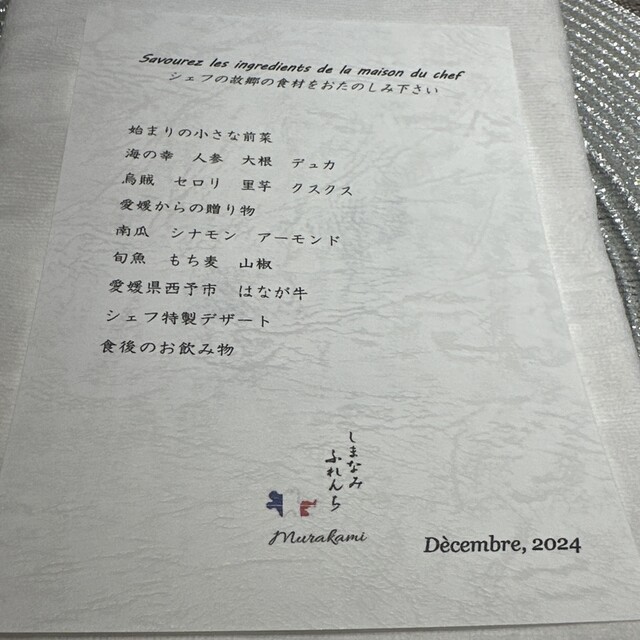 Savourez les ingredients de la maison du chef
シェフの故郷の食材をおたのしみ下さい
始まりの小さな前菜
海の幸　人参　大根　デュカ
烏賊　セロリ　里芋　クスクス
愛媛からの贈り物
南瓜　シナモン　アーモンド
旬魚　もち麦　山椒
愛媛県西予市　はなが牛
シェフ特製デザート
食後のお飲み物
しまなみ
ふれんち
Murakami
Dècembre, 2024